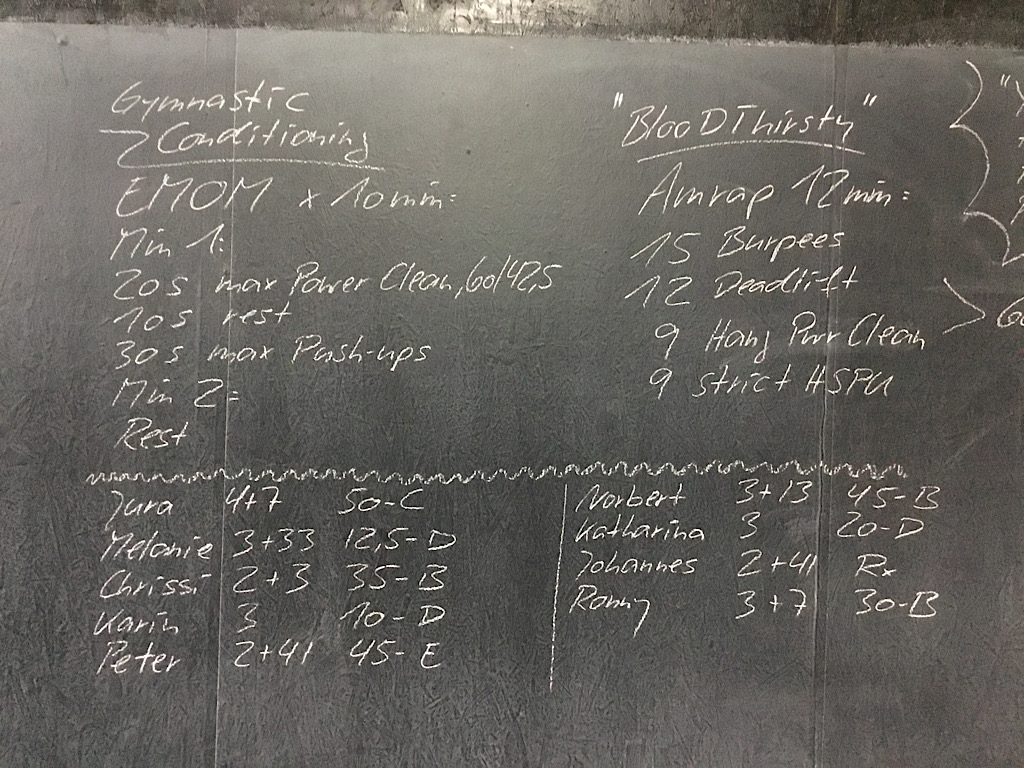 Gymnastic
Conditioning
EMOM x 10min:
Min 1:
20s max Power Clean, 60/42,5
10s rest
30s max Push-ups
Min 2:
Rest
"BlooDThirsty"
Amrap 12min:
15 Burpees
12 Deadlift
9 Hang Pwr Clean
9 strict HSPU
Jura 4+7 50-C
Melanie 3+33 12,5-D
Chrissi 2+3 35-B
Karin 3 10-D
Peter 2+41 45-E
Norbert 3+13 45-B
Katharina 3 20-D
Johannes 2+41 Rx
Ronny 3+7 30-B